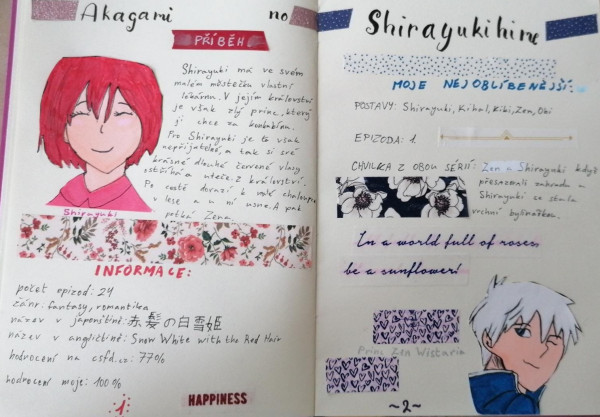 Akagami no
PŘÍBĚH
Shirayuki má ve svém
malém městečku vlastní
lékárnu. V jejím království
je však zlý princ, který
ji chce za konkubínu.
Pro Shirayuki je to však
nepřijatelné, a tak si své
krásné dlouhé červené vlasy
ostříhá a uteče z království.
Po cestě dorazí k malé chaloupce
v lese a u ní usne. A pak
potká Zena.
Shirayuki
INFORMACE:
počet epizod: 24
žánr: fantasy, romantika
název v japonštině: 赤髪の白雪姫
název v angličtině: Snow White with the Red Hair
hodnocení na csfd.cz: 77%
hodnocení moje: 100%
1
HAPPINESS
Shirayukihime
MOJE NEJOBLÍBENĚJŠÍ:
POSTAVY: Shirayuki, Kihal, Kiki, Zen, Obi
EPIZODA: 1.
CHVILKA Z OBOU SÉRIÍ: Zen a Shirayuki když
přesazovali zahradu a
Shirayuki se stala
vrchní bylinářkou.
In a world full of roses
be a sunflower!
Princ Zen Wistaria
~2~